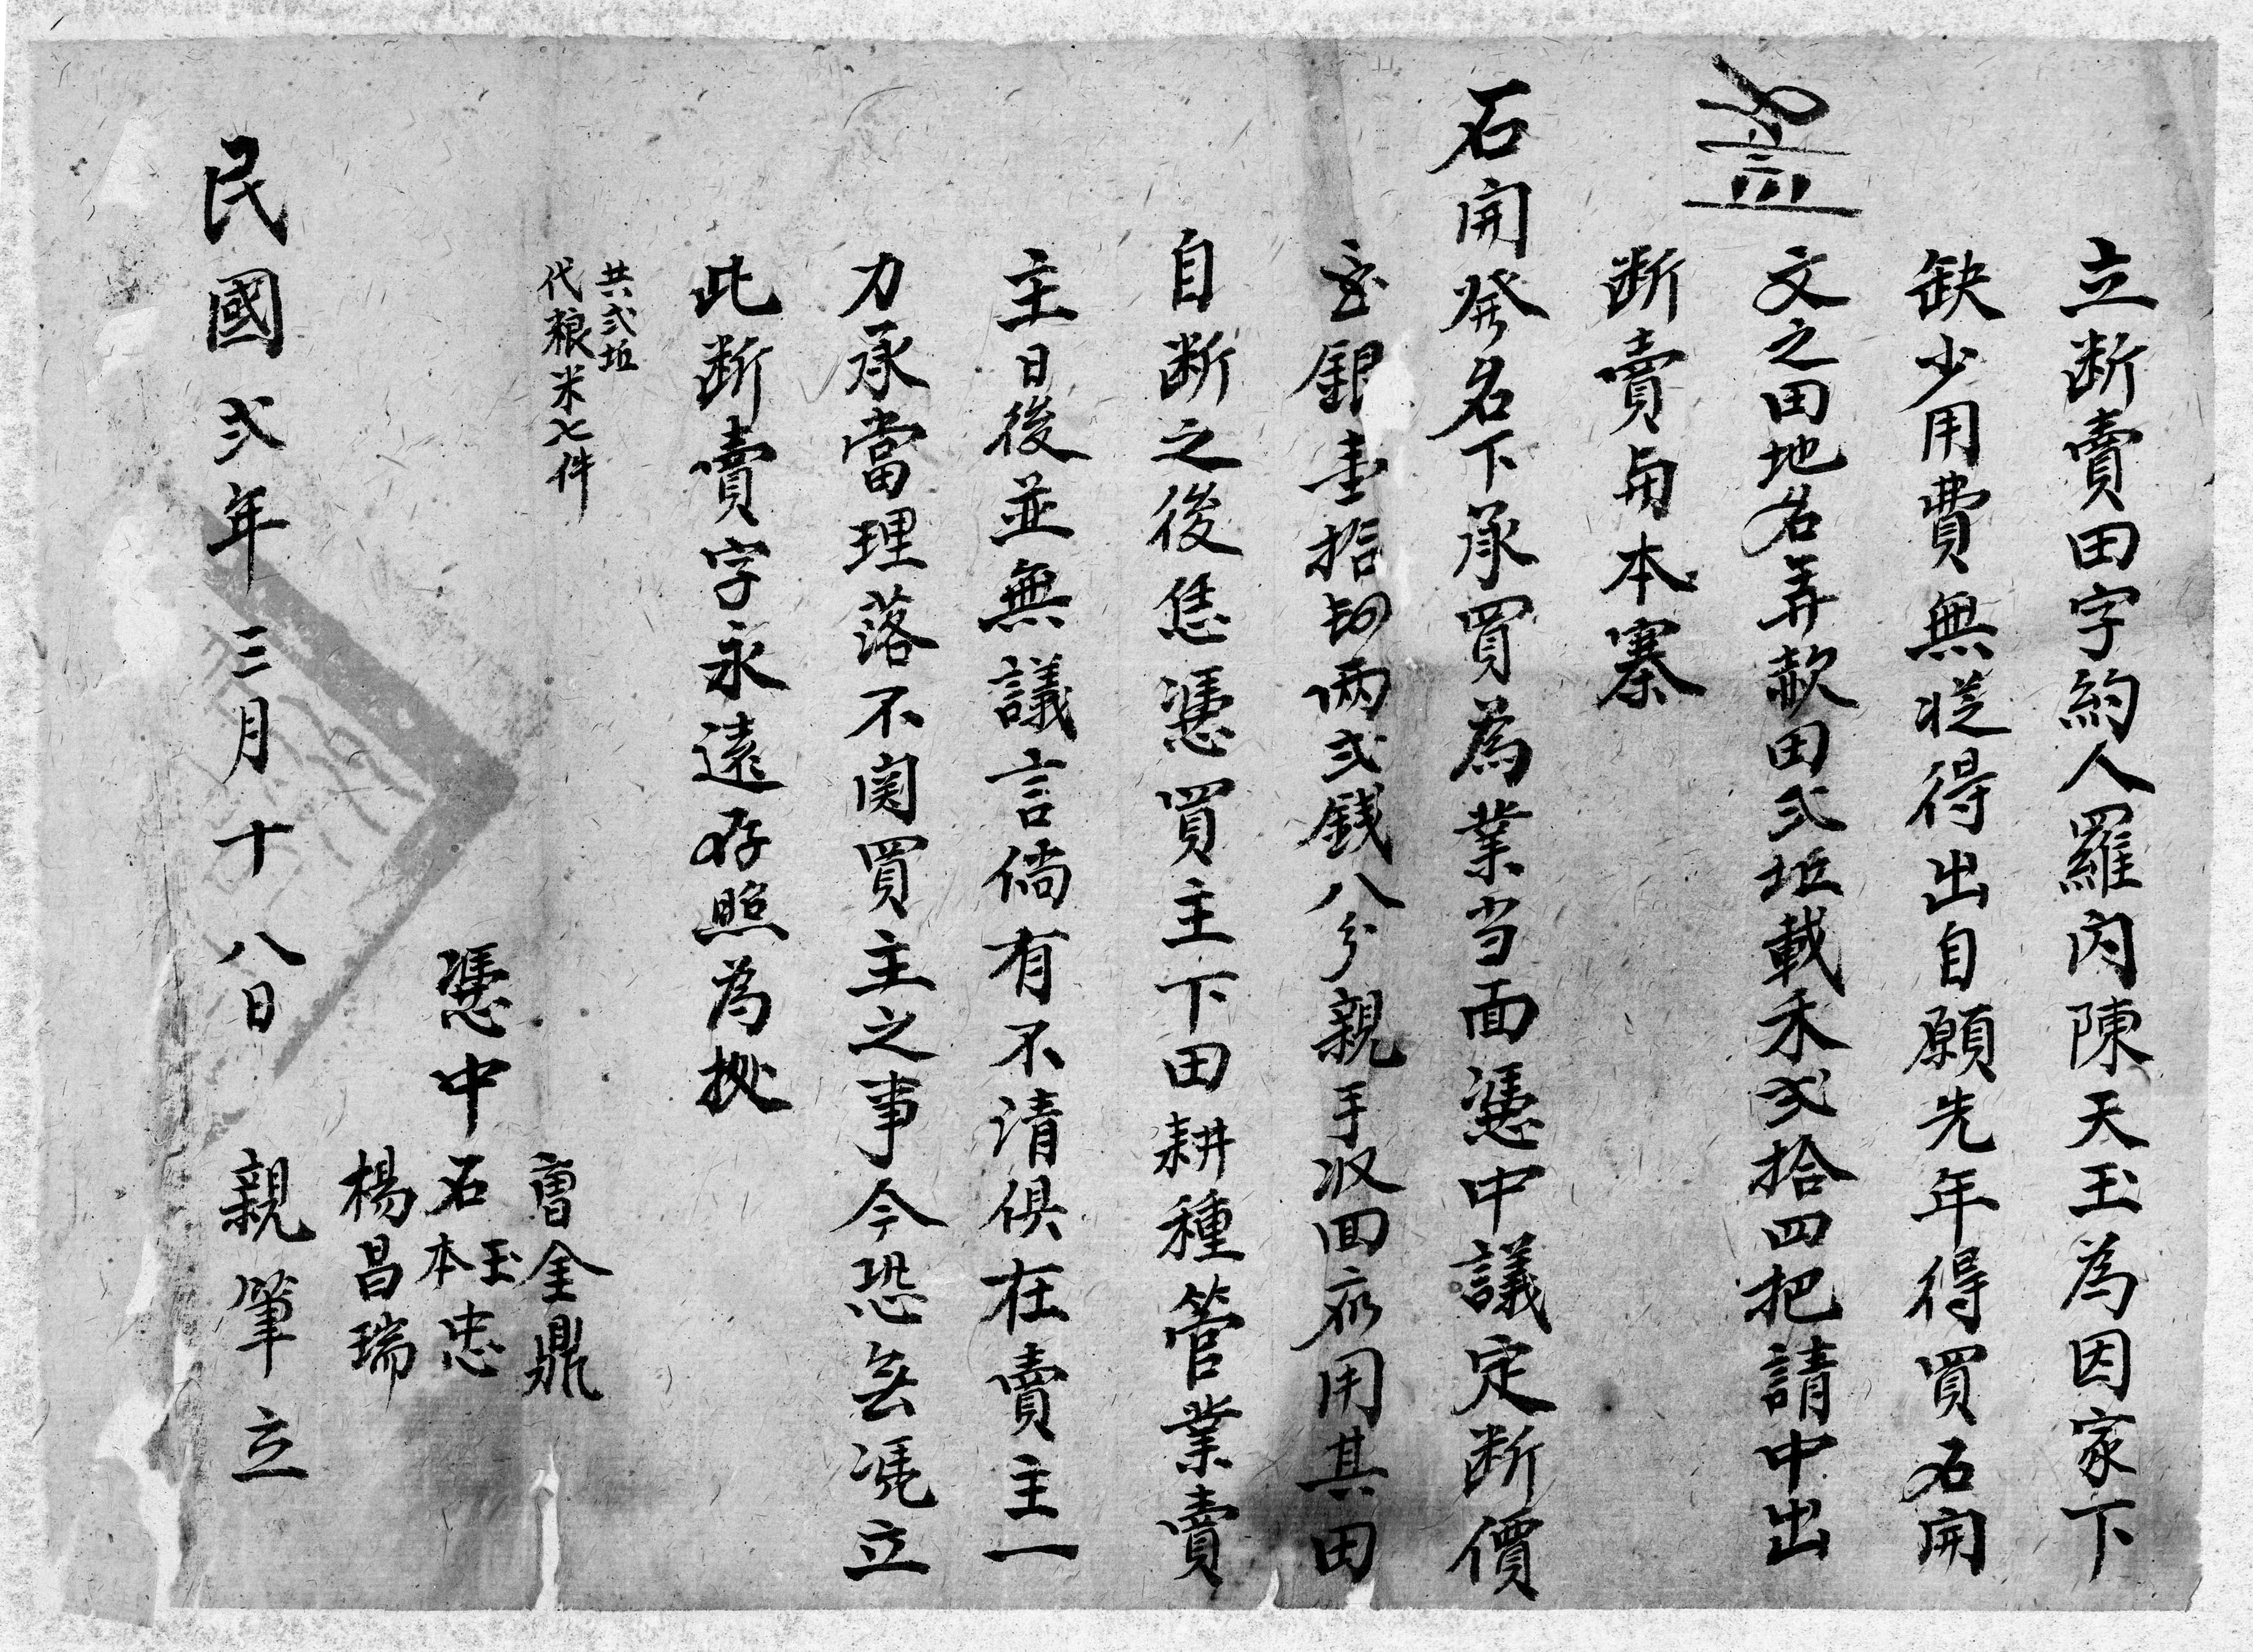 立断賣田字約人羅内陳天玉為因家下
缺少用費無從得出自願先年得買石開
文之田地名弄款田弍坵載禾弍拾四把請中出
断賣与本寨
石開發名下承買為業当面憑中議定断價
銀壹拾 兩弍錢八分親手收回應用其田
自断之後恁憑買主下田耕種管業賣
主日後並無議言倘有不清俱在賣主一
力承當理落不関買主之事今恐無凴立
此断賣字永遠存照為拠
共弍坵
代粮米七件
曾金鼎
憑中 石本玉忠
楊昌瑞
民國弍年三月十八日 親筆立